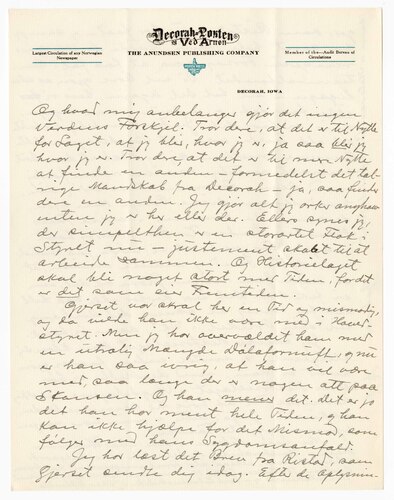 Decorah-Posten
og Ved Arnen
Largest Circulation of any Norwegian
Newspaper
THE ANUNDSEN PUBLISHING COMPANY
Member of the Audit Bureau of
Circulations
DECORAH, IOWA
Og hvad mig anbelanger gjør det ingen
Verdens Forskjel. Tror dere, at det er til Nytte
for Laget, at jeg blir, hvor jeg er, ja saa blir jeg
hvor jeg er. Tror dere, at det er til mere Nytte
at finde en anden — formedelst det
Mandskab fra Decorah — ja, saa finder
dere en anden. Jeg gjør alt jeg orker
enten jeg er her eller der. Ellers synes jeg,
det simpelthen er en storartet Flok i
Styret nu — justement skabt til at
arbeide sammen. Og Historielaget
skal bli noget stort med Tiden, fordi
er det som eier Fremtiden.
Gjerset var skral her en Tid og mismodig,
og da vilde han ikke være med i
styret. Men jeg har overvældet ham med
en utrolig Mængde Dalafornuft, og nu
er han saa ivrig, at han vil være
med, saa længe der er nogen att paa
Stansen. Og han mener det. Det er jo
det han har ment hele Tiden, og han
kan ikke hjælpe for det Mismod, som
følger med hans Sygdomsanfald.
Jeg har læst det Brev fra Ristad, som
Gjerset sendte dig idag. Efter de